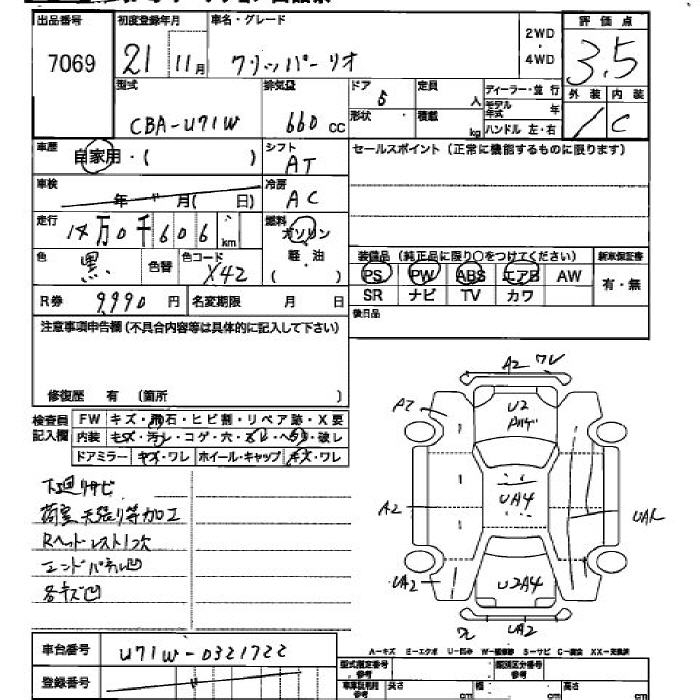 出品番号 初度登録年月 車名・グレード 2WD・4WD 評価点
7069 21 11月 クリッパーリオ 3.5
型式 排気量 ドア 5 定員 人 ディーラー・並行 外装 内装
CBA-U71W 660 CC 形状 ・ 積載 kg モデル年式 年 ハンドル 左・右 / C
車歴 自家用・( ) シフト AT セールスポイント (正常に機能するものに限ります)
車検 年 月( 日) 冷房 AC
走行 14万0千606 km 燃料 ガソリン
軽・油
( )
色 黒 色替 色コード X42 装備品 (純正品に限り○をつけてください) 新車保証書
PS PW ABS エアB AW 有・無
R券 9,990 円 名変期限 月 日 SR ナビ TV カワ
注意事項申告欄 (不具合内容等は具体的に記入して下さい) 後日品
修復歴 有 (箇所 )
検査員記入欄 FW キズ・飛石・ヒビ割・リペア跡・X要
内装 キズ・汚レ・コゲ・穴・スレ・ヘタリ・破レ
ドアミラー キズ・ワレ ホイール・キャップ キズ・ワレ
下廻りサビ
荷室天張り等加工
Rヘッドレスト1欠
エンドパネル凹
各キズ凹
A2 ワレ
A2 U2
A2 UA4
UA2 U2A4
UA2
車台番号 U71W-0321722
登録番号
A-キズ E-エクボ U-凹み W-補修跡 S-サビ C-腐食 XX-交換済
型式指定番号 参考 類別区分番号 参考
車庫証明用 参考 長さ cm 幅 cm 高さ cm